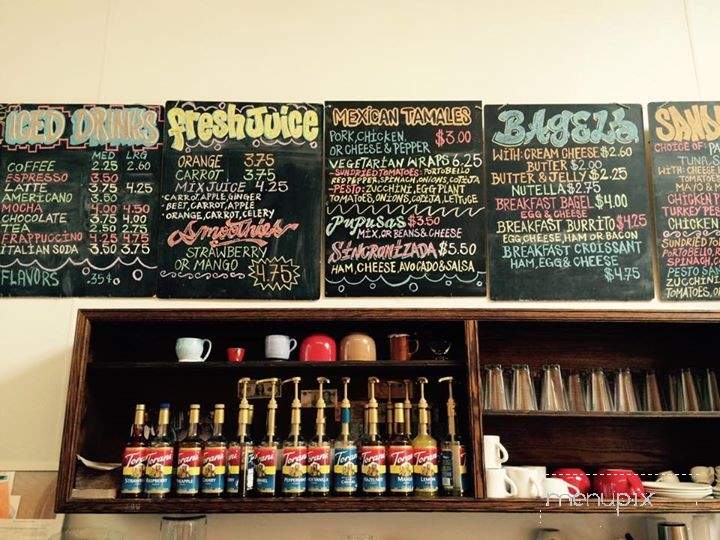 ICED DRINKS
MED LRG
COFFEE 2.25 2.60
ESPRESSO 3.50
LATTE 3.75 4.25
AMERICANO 3.50
MOCHA 4.00 4.50
CHOCOLATE 3.75 4.00
TEA 2.50 2.75
FRAPPUCCINO 4.25 4.75
ITALIAN SODA 3.50 3.75
FLAVORS .35¢
fresh Juice
ORANGE 3.75
CARROT 3.75
MIX JUICE 4.25
*CARROT, APPLE, GINGER
*BEET, CARROT, APPLE
*ORANGE, CARROT, CELERY
Smoothies
STRAWBERRY
OR MANGO 4.75
MEXICAN TAMALES
PORK, CHICKEN,
OR CHEESE & PEPPER $3.00
VEGETARIAN WRAPS 6.25
-SUNDRIED TOMATOES: PORTOBELLO
RED PEPPER, SPINACH, ONIONS, COTIJA
-PESTO: ZUCCHINI, EGG PLANT
TOMATOES, ONIONS, COTIJA, LETTUCE
Pupusas $3.50
MIX, OR BEANS & CHEESE
SINCRONIZADA $5.50
HAM, CHEESE, AVOCADO & SALSA
BAGELS
WITH: CREAM CHEESE $2.60
BUTTER $2.00
BUTTER & JELLY $2.25
NUTELLA $2.75
BREAKFAST BAGEL $4.00
EGG & CHEESE
BREAKFAST BURRITO $4.25
EGG, CHEESE, HAM OR BACON
BREAKFAST CROISSANT
HAM, EGG & CHEESE
$4.75
SAND
CHOICE OF:
TUNA
WITH: CHEESE
MAYO &
CHICKEN
TURKEY PE
CHICKEN
SUNDRIED TO
PORTOBELLO, R
SPINACH, C
PESTO SAN
ZUCCHINI
TOMATOES, O
Torani
Torani
RASPBERRY
Torani
Torani
CHERRY
Torani
Torani
Torani
PEPPERMINT
Torani
VANILLA
Torani
Torani
HAZELNUT
Torani
MANGO
Torani
LEMON
menupix